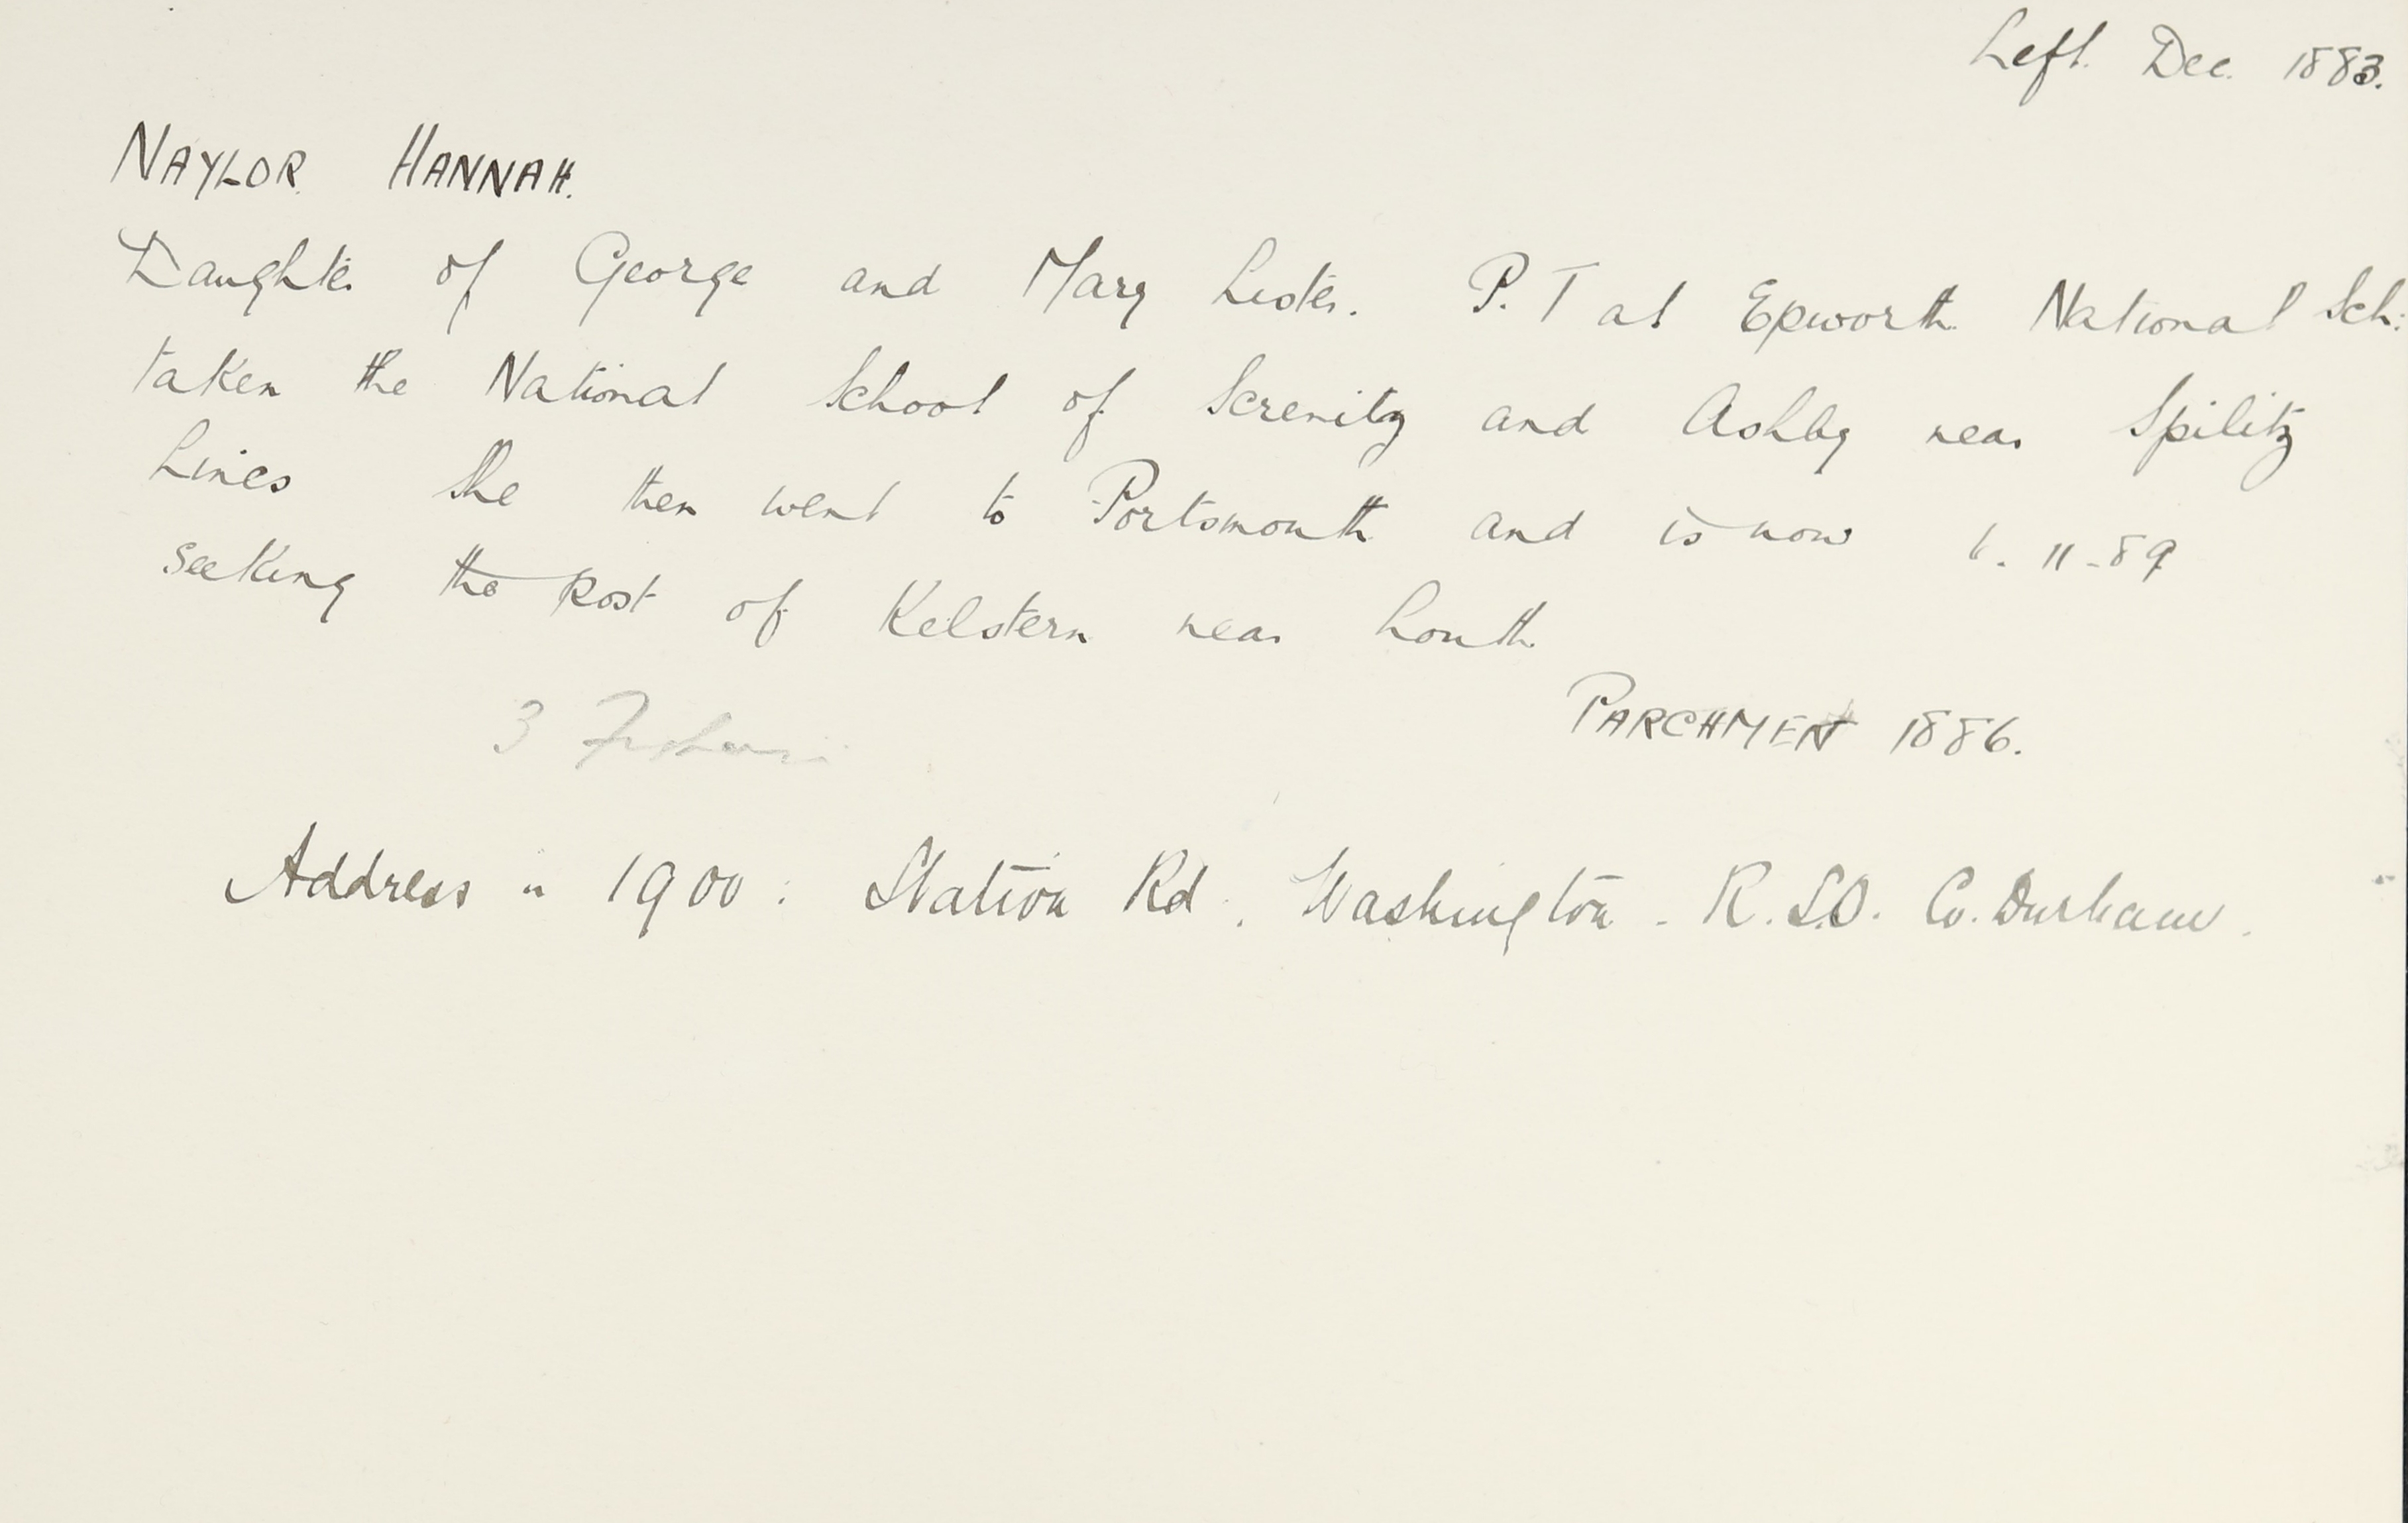 Left. Dec. 1883.
NAYLOR HANNAH.
Daughter of George and Mary Lister. P.T at Epworth National Sch.
taken the National School of Scremity and Ashby near Spilitz
Lincs She then went to Portsmouth and is now 6. 11-89
seeking the Post of Kelstern near Louth
PARCHMENT 1886.
3
Address " 1900 : Station Rd. Washington - R.S.O. Co. Durham.